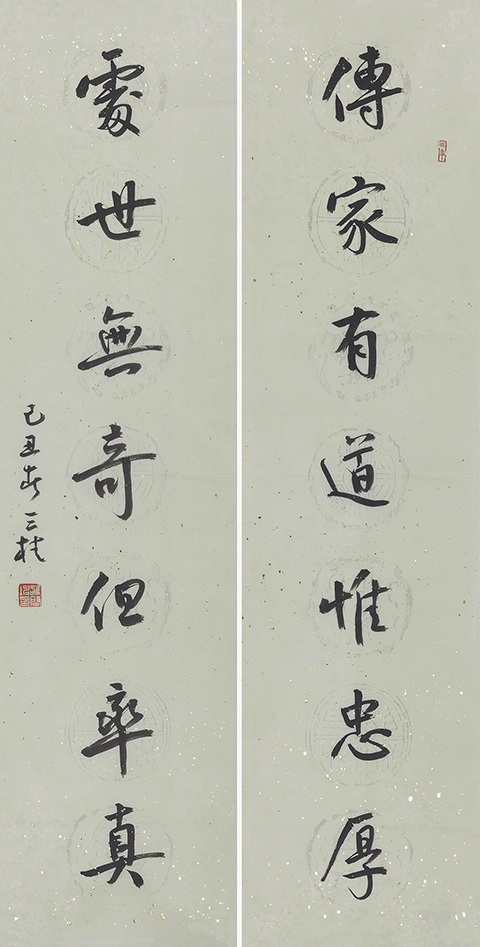 傳家有道惟忠厚
處世無奇但率真
己丑春三